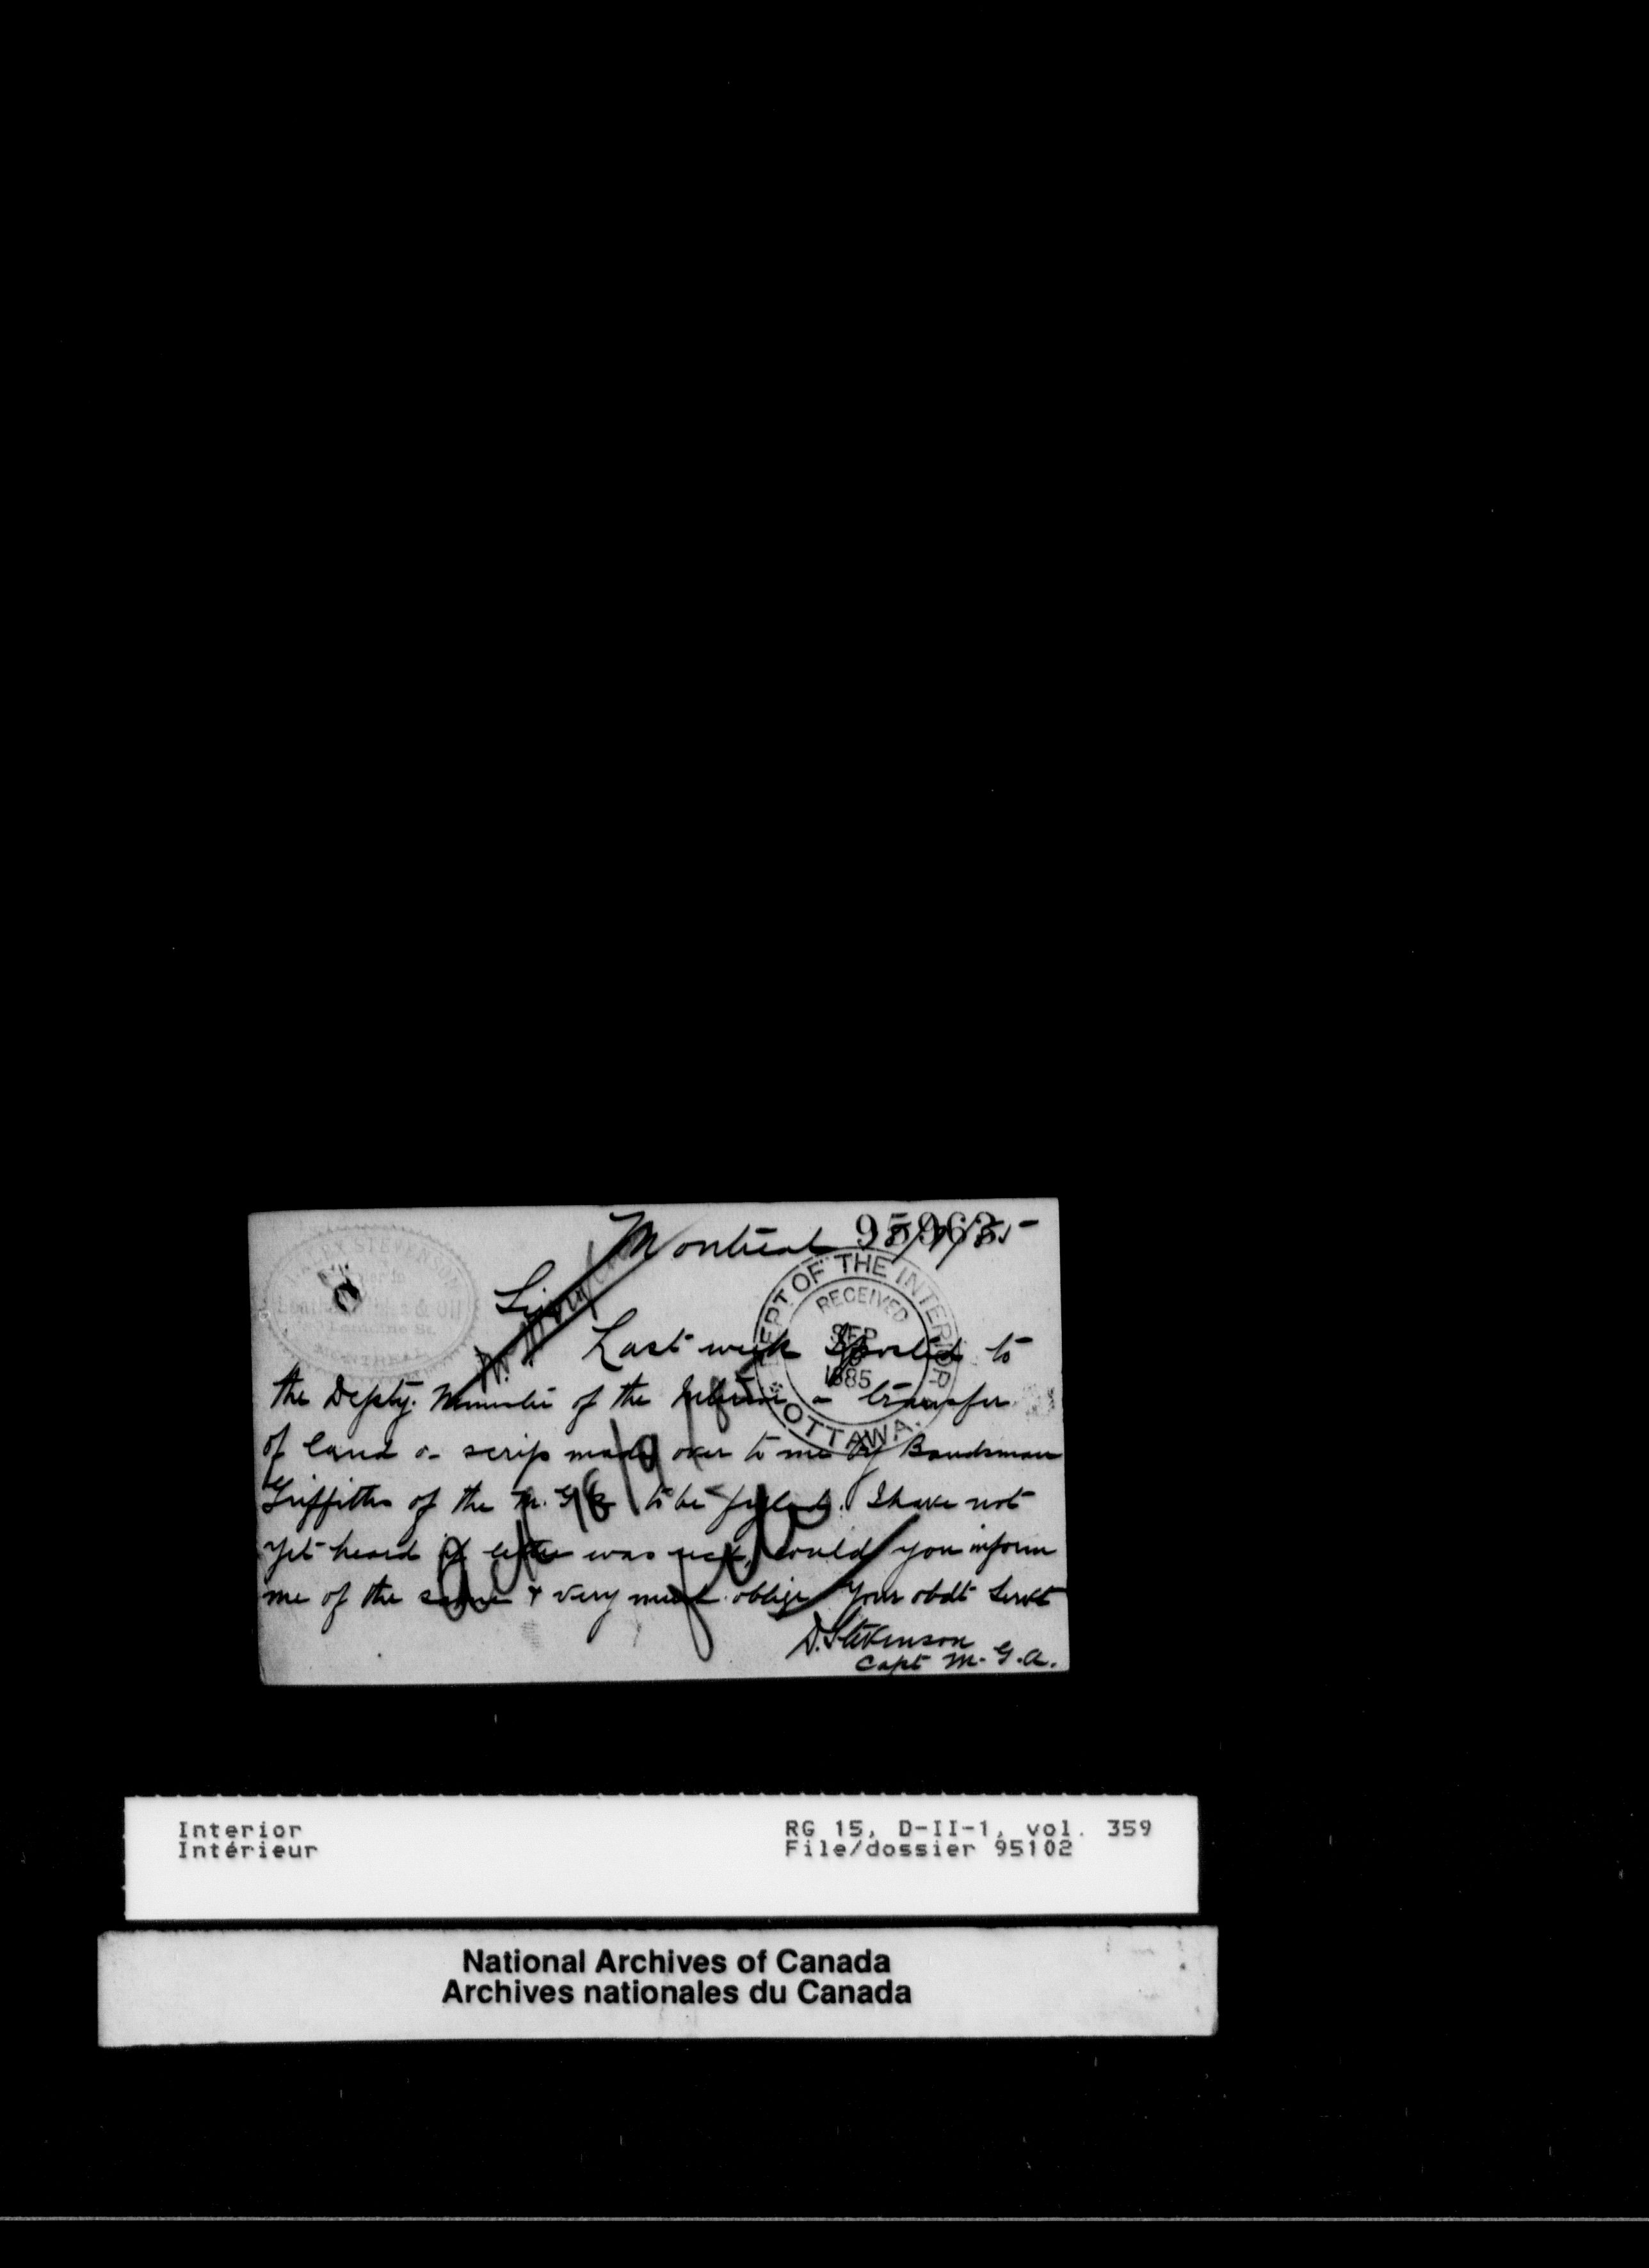 95963
Montreal 15/9/85
STEVENSON
& Oil
Lemoine St.
MONTREAL
DEPT OF THE INTERIOR
RECEIVED
SEP
1885
OTTAWA
Sir
Last week I posted to
the Depty. Minister of the Interior a transfer
of land or scrip made over to me by Bandsman
Griffiths of the M. G. A to be fyled. I have not
yet heard if letter was recd, could you inform
me of the same & very much oblige Your obdt Servt
D. Stevenson
Capt M. G. A.
Interior
Intérieur
RG 15, D-II-1, vol. 359
File/dossier 95102
National Archives of Canada
Archives nationales du Canada